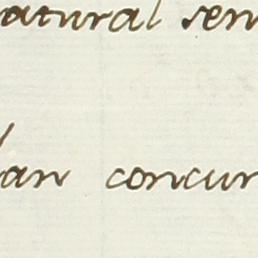 natural sen
lan concur